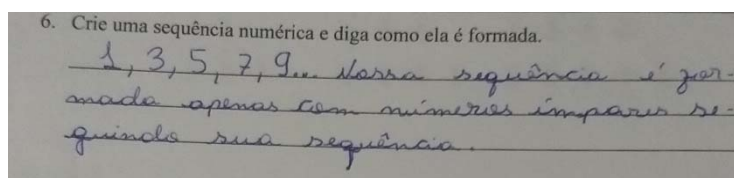 6. Crie uma sequência numérica e diga como ela é formada.
1, 3, 5, 7, 9... Nossa sequência é for-
mada apenas com números ímpares se-
guindo sua sequência.